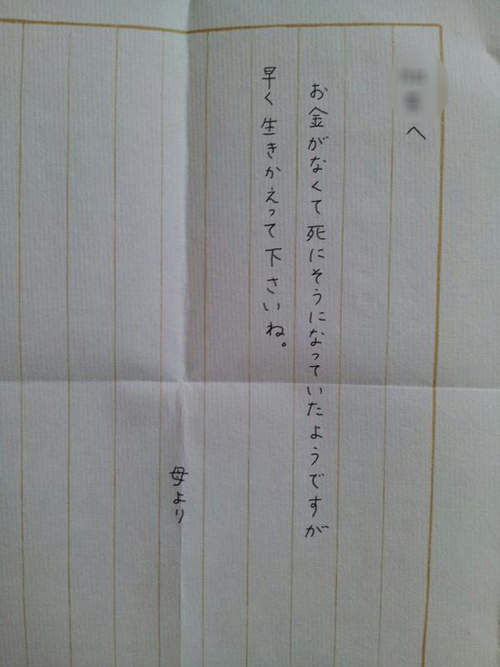 へ
お金がなくて死にそうになっていたようですが
早く生きかえって下さいね。
母より